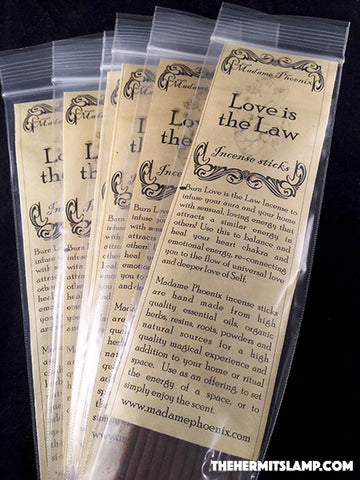 Madame Phoenix
Love is
the Law
Incense sticks
Burn Love is the Law Incense to
infuse your aura and your home
with sensual, loving energy that
attracts a similar energy in
others! Use this to balance and
heal your heart chakra and
emotional energy, re-connecting
you to the flow of universal love
and deeper love of Self.
Madame Phoenix incense sticks
are hand made from high
quality essential oils, organic
herbs, resins, roots, powders and
natural sources for a high
quality magical experience and
addition to your home or ritual
space. Use as an offering, to set
the energy of a space, or to
simply enjoy the scent.
www.madamephoenix.com
THEHERMITSLAMP.COM